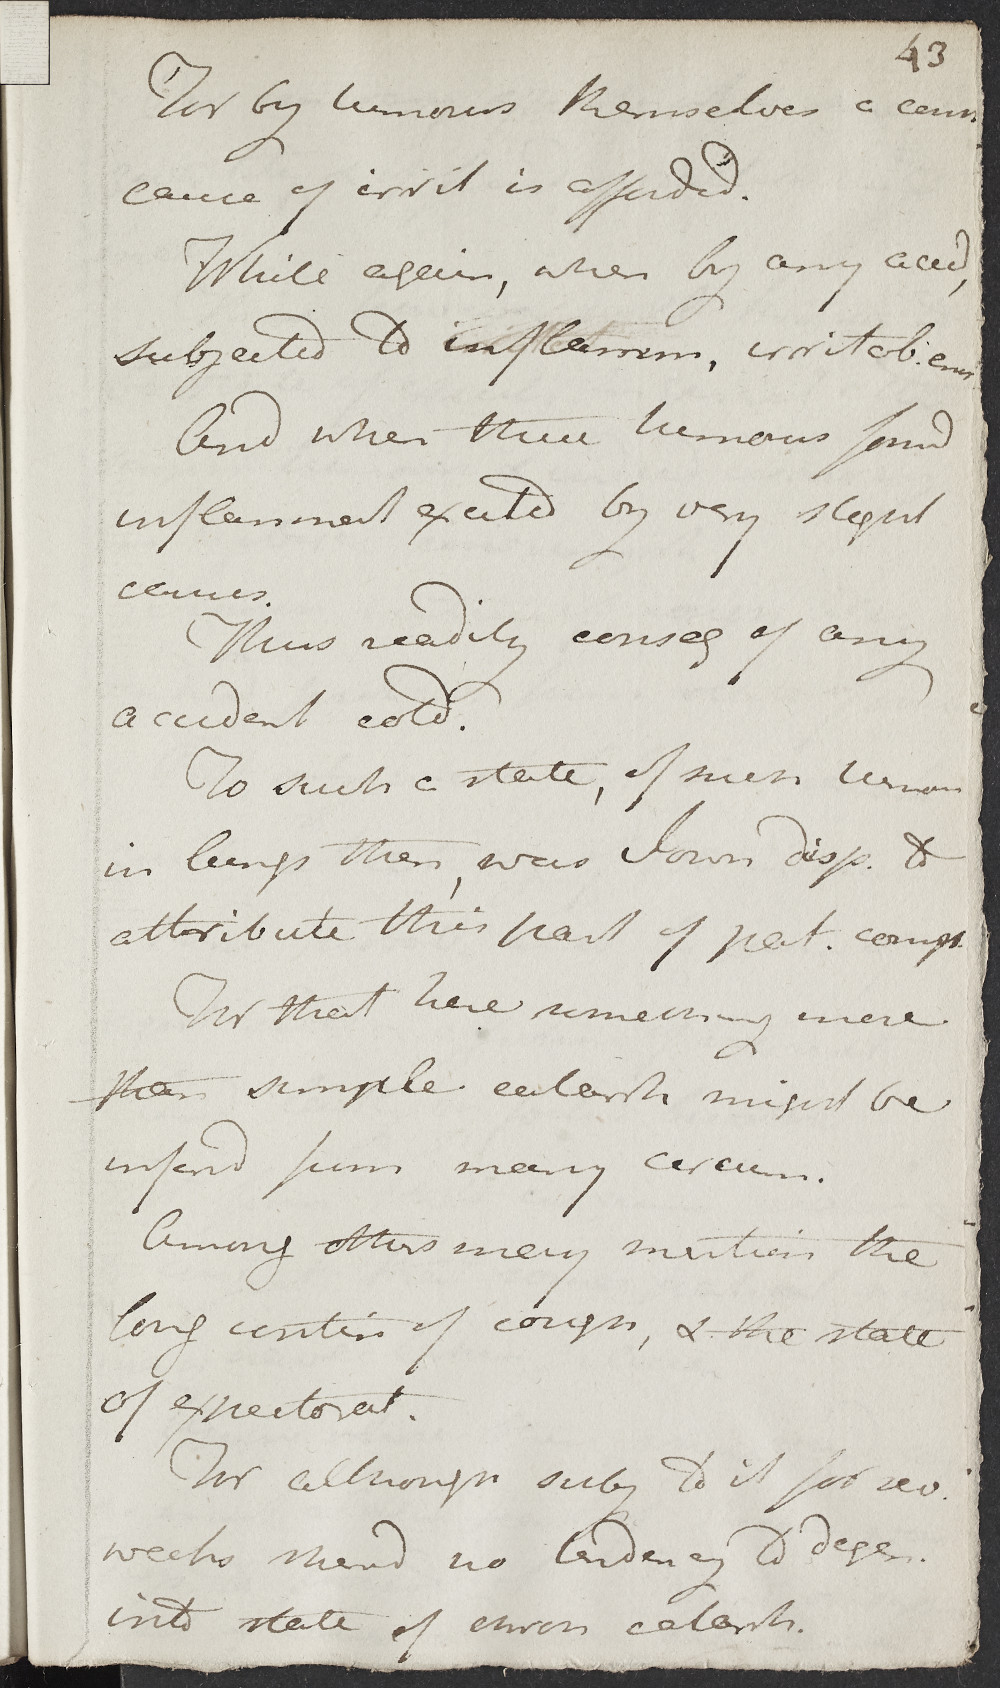 43
For by tumours themselves a cons
cause of irrit is afforded.
While again, when by any accid,
subjected to inflamm, irritab. ens
And when these tumours formd
inflammat excited by very slight
causes.
Thus readily conseq of any
accident cold.
To such a state, of such tumour
in lungs then, was I own disp. to
attribute this part of pat. compt.
For that here something more
than simple catarrh might be
inferd from many circum.
Among others may mention the
long contin of cough, & the state
of expectorat.
For although subj to it for sev.
weeks shewd no tendency to degen.
into state of chron catarrh.